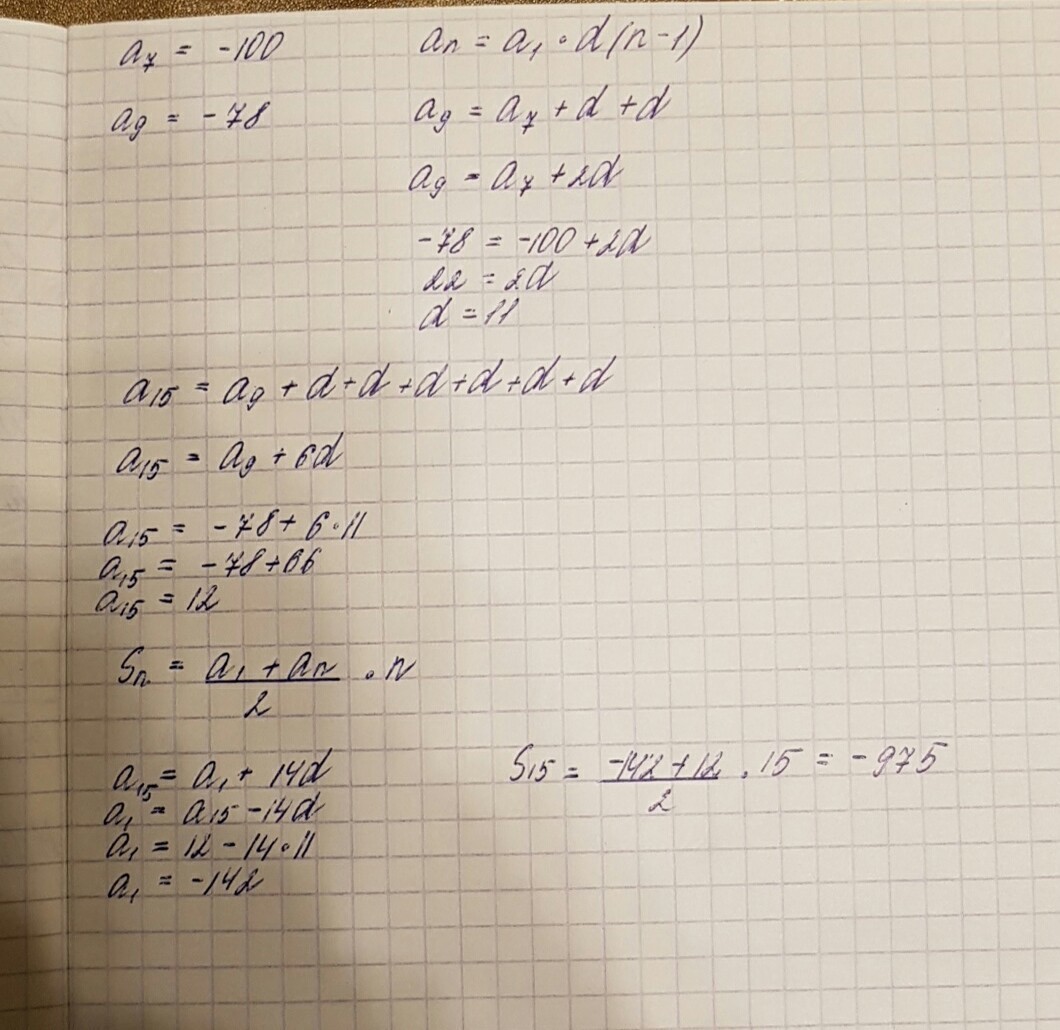 a₇ = -100
a₉ = -78
aₙ = a₁ · d(n-1)
a₉ = a₇ + d + d
a₉ = a₇ + 2d
-78 = -100 + 2d
22 = 2d
d = 11
a₁₅ = a₉ + d + d + d + d + d + d
a₁₅ = a₉ + 6d
a₁₅ = -78 + 6·11
a₁₅ = -78 + 66
a₁₅ = 12
Sₙ = (a₁ + aₙ)/2 · n
a₁₅ = a₁ + 14d
a₁ = a₁₅ - 14d
a₁ = 12 - 14·11
a₁ = -142
S₁₅ = (-142 + 12)/2 · 15 = -975